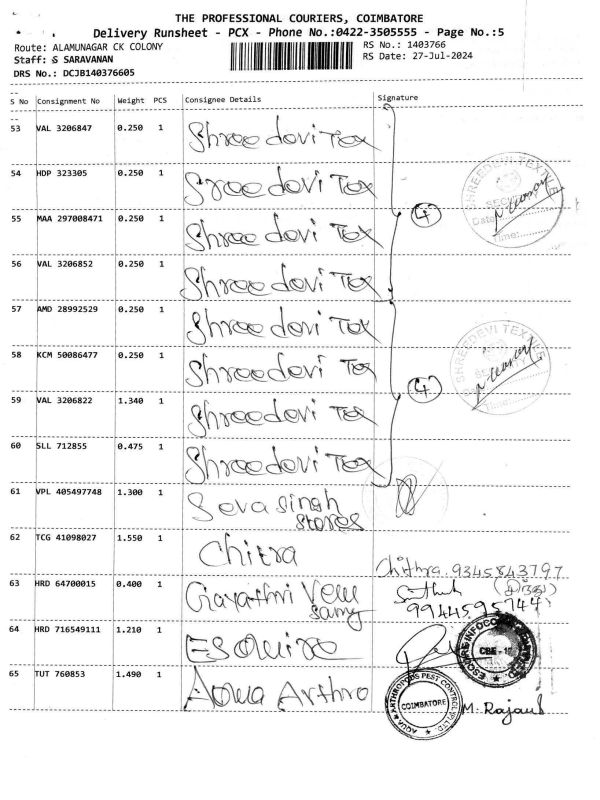 THE PROFESSIONAL COURIERS, COIMBATORE
Delivery Runsheet - PCX - Phone No.:0422-3505555 - Page No.:5
Route: ALAMUNAGAR CK COLONY RS No.: 1403766
Staff: S SARAVANAN RS Date: 27-Jul-2024
DRS No.: DCJB140376605
S No Consignment No Weight PCS Consignee Details Signature
53 VAL 3206847 0.250 1 Shree devi Tex
54 HDP 323305 0.250 1 Sree devi Tex
55 MAA 297008471 0.250 1 Shree devi Tex
4
SHREEDEVI TEXTILE
SECURITY
Date:
Time:
56 VAL 3206852 0.250 1 Shree devi Tex
57 AMD 28992529 0.250 1 Shree devi Tex
58 KCM 50086477 0.250 1 Shree devi Tex
4
SHREEDEVI TEXTILE
Time:
59 VAL 3206822 1.340 1 Shree devi Tex
60 SLL 712855 0.475 1 Shree devi Tex
61 VPL 405497748 1.300 1 Seva singh
stores
62 TCG 41098027 1.550 1 Chitra
Chithra. 9345843797
63 HRD 64700015 0.400 1 Gayathri Venu
samy
9944595744
64 HRD 716549111 1.210 1 Esquire
CBE - 18
65 TUT 760853 1.490 1 Aqua Arthro
AQUA & ARTHROPODS PEST CONTROL (P) LTD.
COIMBATORE
M. Rajaul